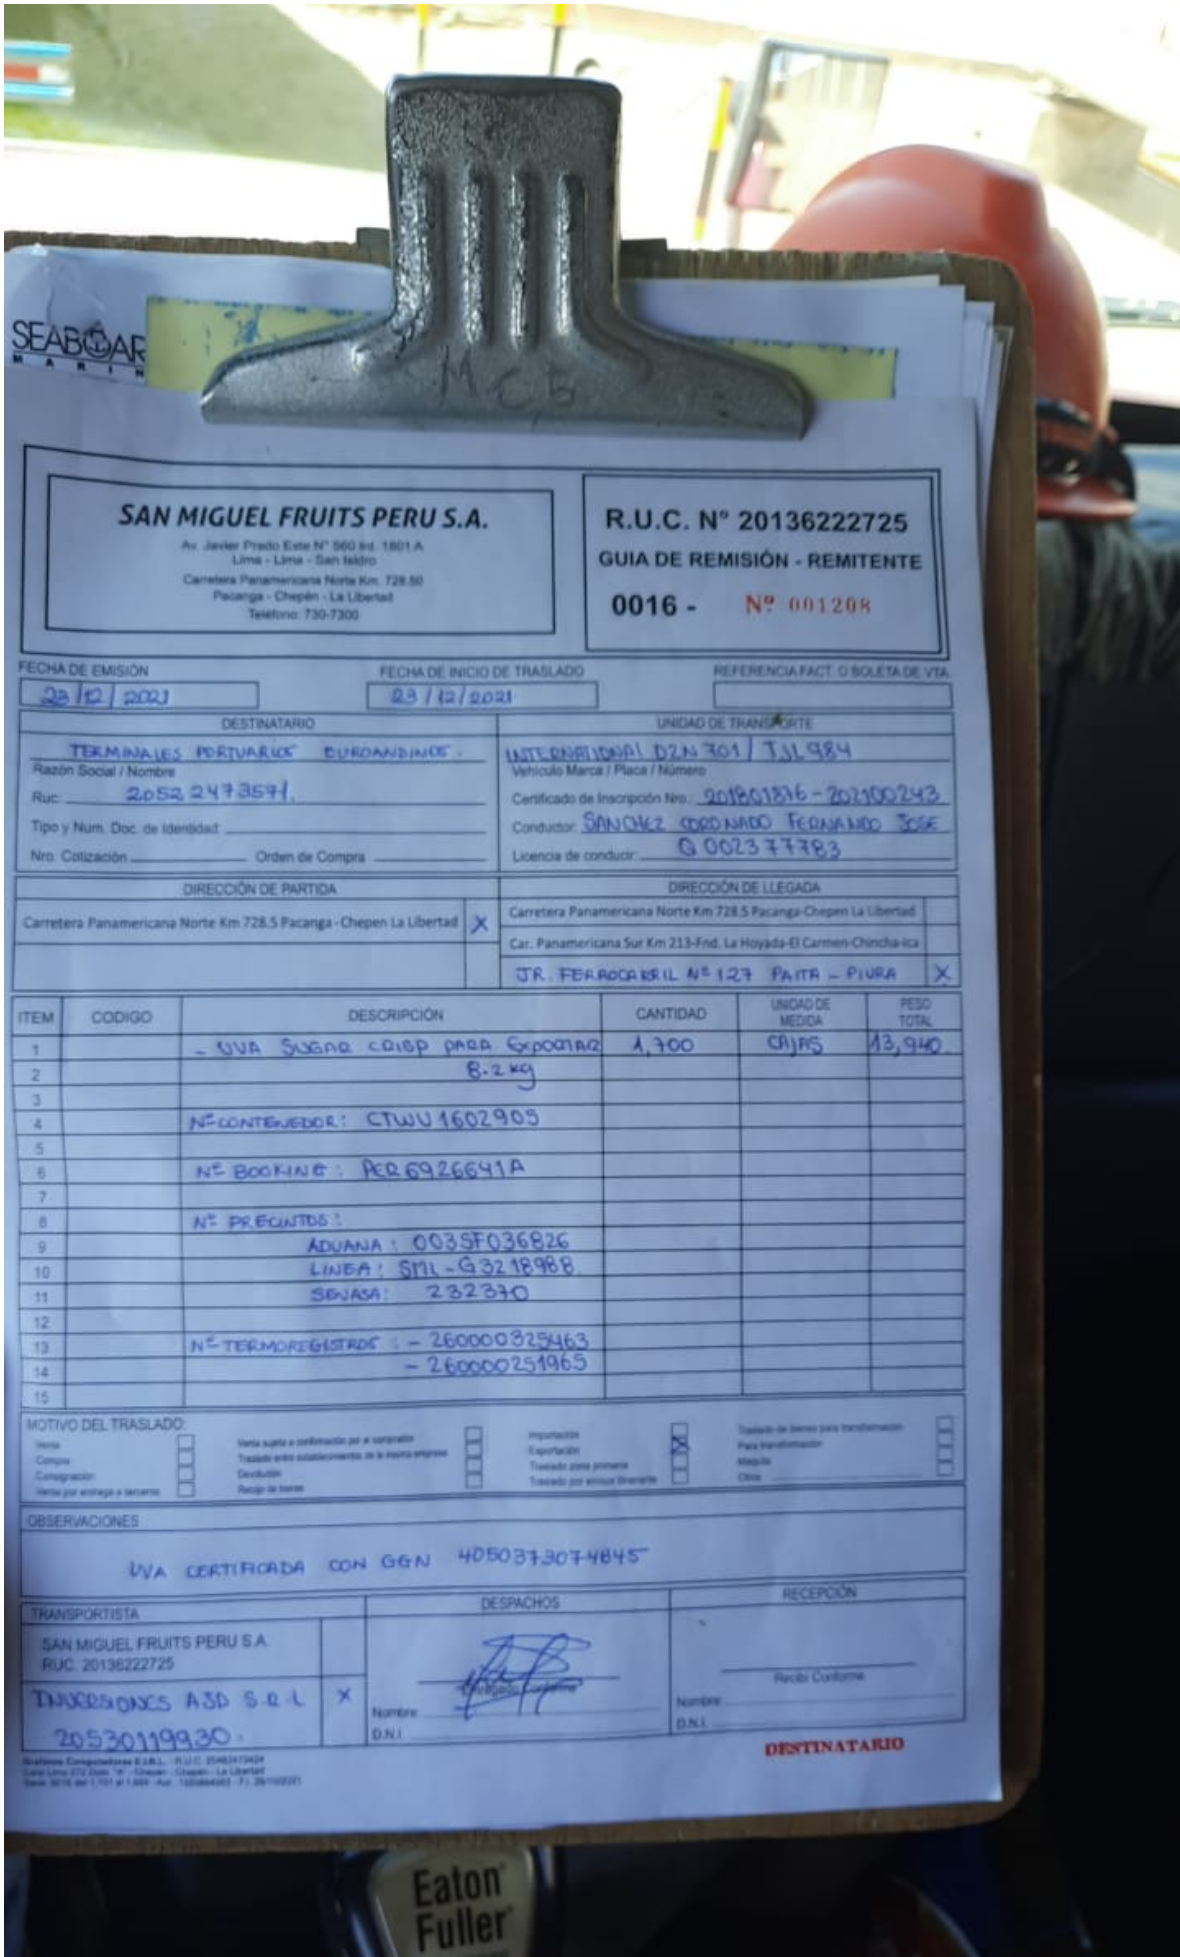 SEABOAR
MARIN
MC5
SAN MIGUEL FRUITS PERU S.A.
Av. Javier Prado Este N° 560 Int. 1801 A
Lima - Lima - San Isidro
Carretera Panamericana Norte Km. 728.50
Pacanga - Chepén - La Libertad
Teléfono: 730-7300
R.U.C. Nº 20136222725
GUIA DE REMISIÓN - REMITENTE
0016 - Nº 001208
FECHA DE EMISIÓN
23/12/2021
FECHA DE INICIO DE TRASLADO
23/12/2021
REFERENCIA FACT. O BOLETA DE VTA
DESTINATARIO
TERMINALES PORTUARIOS EUROANDINOS.
Razón Social / Nombre
Ruc: 20522473571.
Tipo y Num. Doc. de Identidad:
Nro. Cotización Orden de Compra
UNIDAD DE TRANSPORTE
INTERNATIONAL D2N 701 / TJL 984
Vehículo Marca / Placa / Número
Certificado de Inscripción Nro.: 201801876 - 202100243
Conductor: SANCHEZ CORONADO FERNANDO JOSE
Licencia de conducir: Q 002377783
DIRECCIÓN DE PARTIDA
Carretera Panamericana Norte Km 728.5 Pacanga - Chepen La Libertad X
DIRECCIÓN DE LLEGADA
Carretera Panamericana Norte Km 728.5 Pacanga-Chepen La Libertad
Car. Panamericana Sur Km 213-Fnd. La Hoyada-El Carmen-Chincha-Ica
JR. FERROCARRIL Nº 127 PAITA - PIURA X
ITEM CODIGO DESCRIPCIÓN CANTIDAD UNIDAD DE MEDIDA PESO TOTAL
1 - UVA SUGAR CRISP PARA EXPORTAR 1,700 CAJAS 13,940.
2 8.2 kg
3
4 Nº CONTENEDOR: CTWU 1602905
5
6 Nº BOOKING: PER6926641A
7
8 Nº PRECINTOS:
9 ADUANA: 003SF036826
10 LINEA: SML-G3218988
11 SENASA: 232370
12
13 Nº TERMOREGISTROS: - 260000325463
14 - 260000251965
15
MOTIVO DEL TRASLADO:
Venta
Compra
Consignación
Venta por entrega a terceros
Venta sujeta a confirmación por el comprador
Traslado entre establecimientos de la misma empresa
Devolución
Recojo de bienes
Importación
Exportación X
Traslado zona primaria
Traslado por emisor itinerante
Traslado de bienes para transformación
Para transformación
Maquila
Otros
OBSERVACIONES
UVA CERTIFICADA CON GGN 4050373074845
TRANSPORTISTA
SAN MIGUEL FRUITS PERU S.A.
RUC. 20136222725
INVERSIONES AJD S.R.L X
20530119930.
DESPACHOS
Entregado Conforme
Nombre
D.N.I.
RECEPCIÓN
Recibí Conforme
Nombre
D.N.I.
DESTINATARIO
Eaton
Fuller